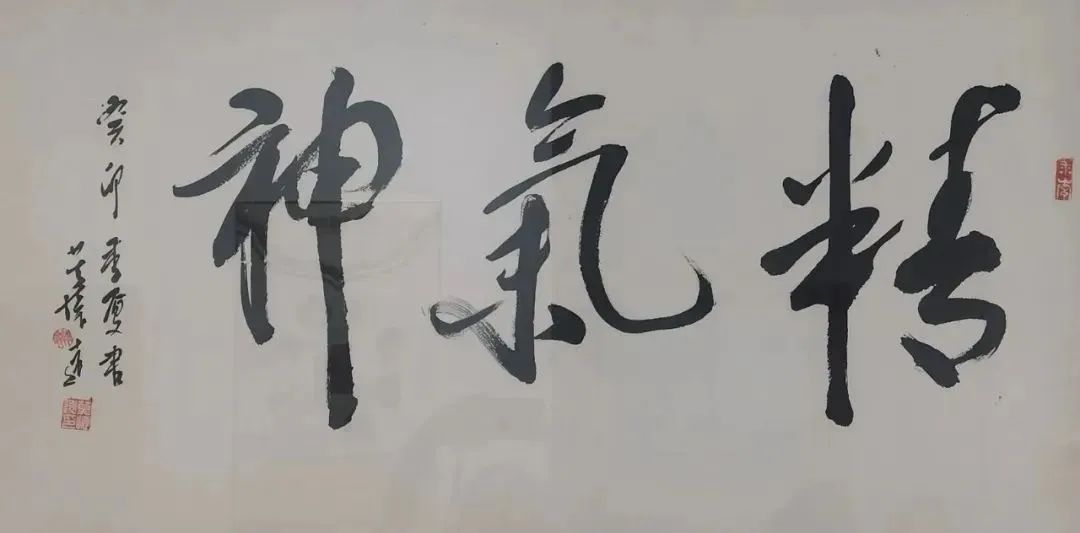 精氣神
癸卯季夏書